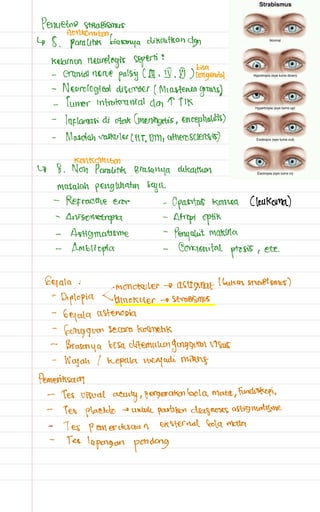 Strabismus
Normal
Hypotropia (eye turns down)
Hypertropia (eye turns up)
Exotropia (eye turns out)
Esotropia (eye turns in)
Penyebab Strabismus
Nonkomitan
↳ S. Paralitik biasanya dikaitkan dgn
kelainan neurologis seperti :
- Cranial nerve palsy (III, IV, VI) bisa congenital
- Neurological disorder (Miastenia gravis)
- Tumor intrakranial dan ↑ TIK
- Inflamasi di otak (meningitis, encephalitis)
- Masalah vaskuler (HT, DM, atherosclerosis)
Konkomitan
↳ S. Non Paralitik Biasanya dikaitkan
masalah penglihatan sejak
- Refractive eror
- Opasitas kornea (leukoma)
- Anisometropia
- Atropi optik
- Astigmatisme
- Penyakit makula
- Ambliopia
- Congenital ptosis, etc.
Gejala :
- Diplopia
monokuler → astigmat (bukan strabismus)
binokuler → strabismus
- Gejala astenopia
- Gangguan secara kosmetik
- Biasanya bisa ditemukan gangguan visus
- Wajah / kepala menjadi miring
Pemeriksaan
- Tes visual acuity, pergerakan bola mata, funduskopi,
- Tes placido → untuk pastikan diagnosis astigmatisme
- Tes pemeriksaan external bola mata
- Tes lapangan pandang